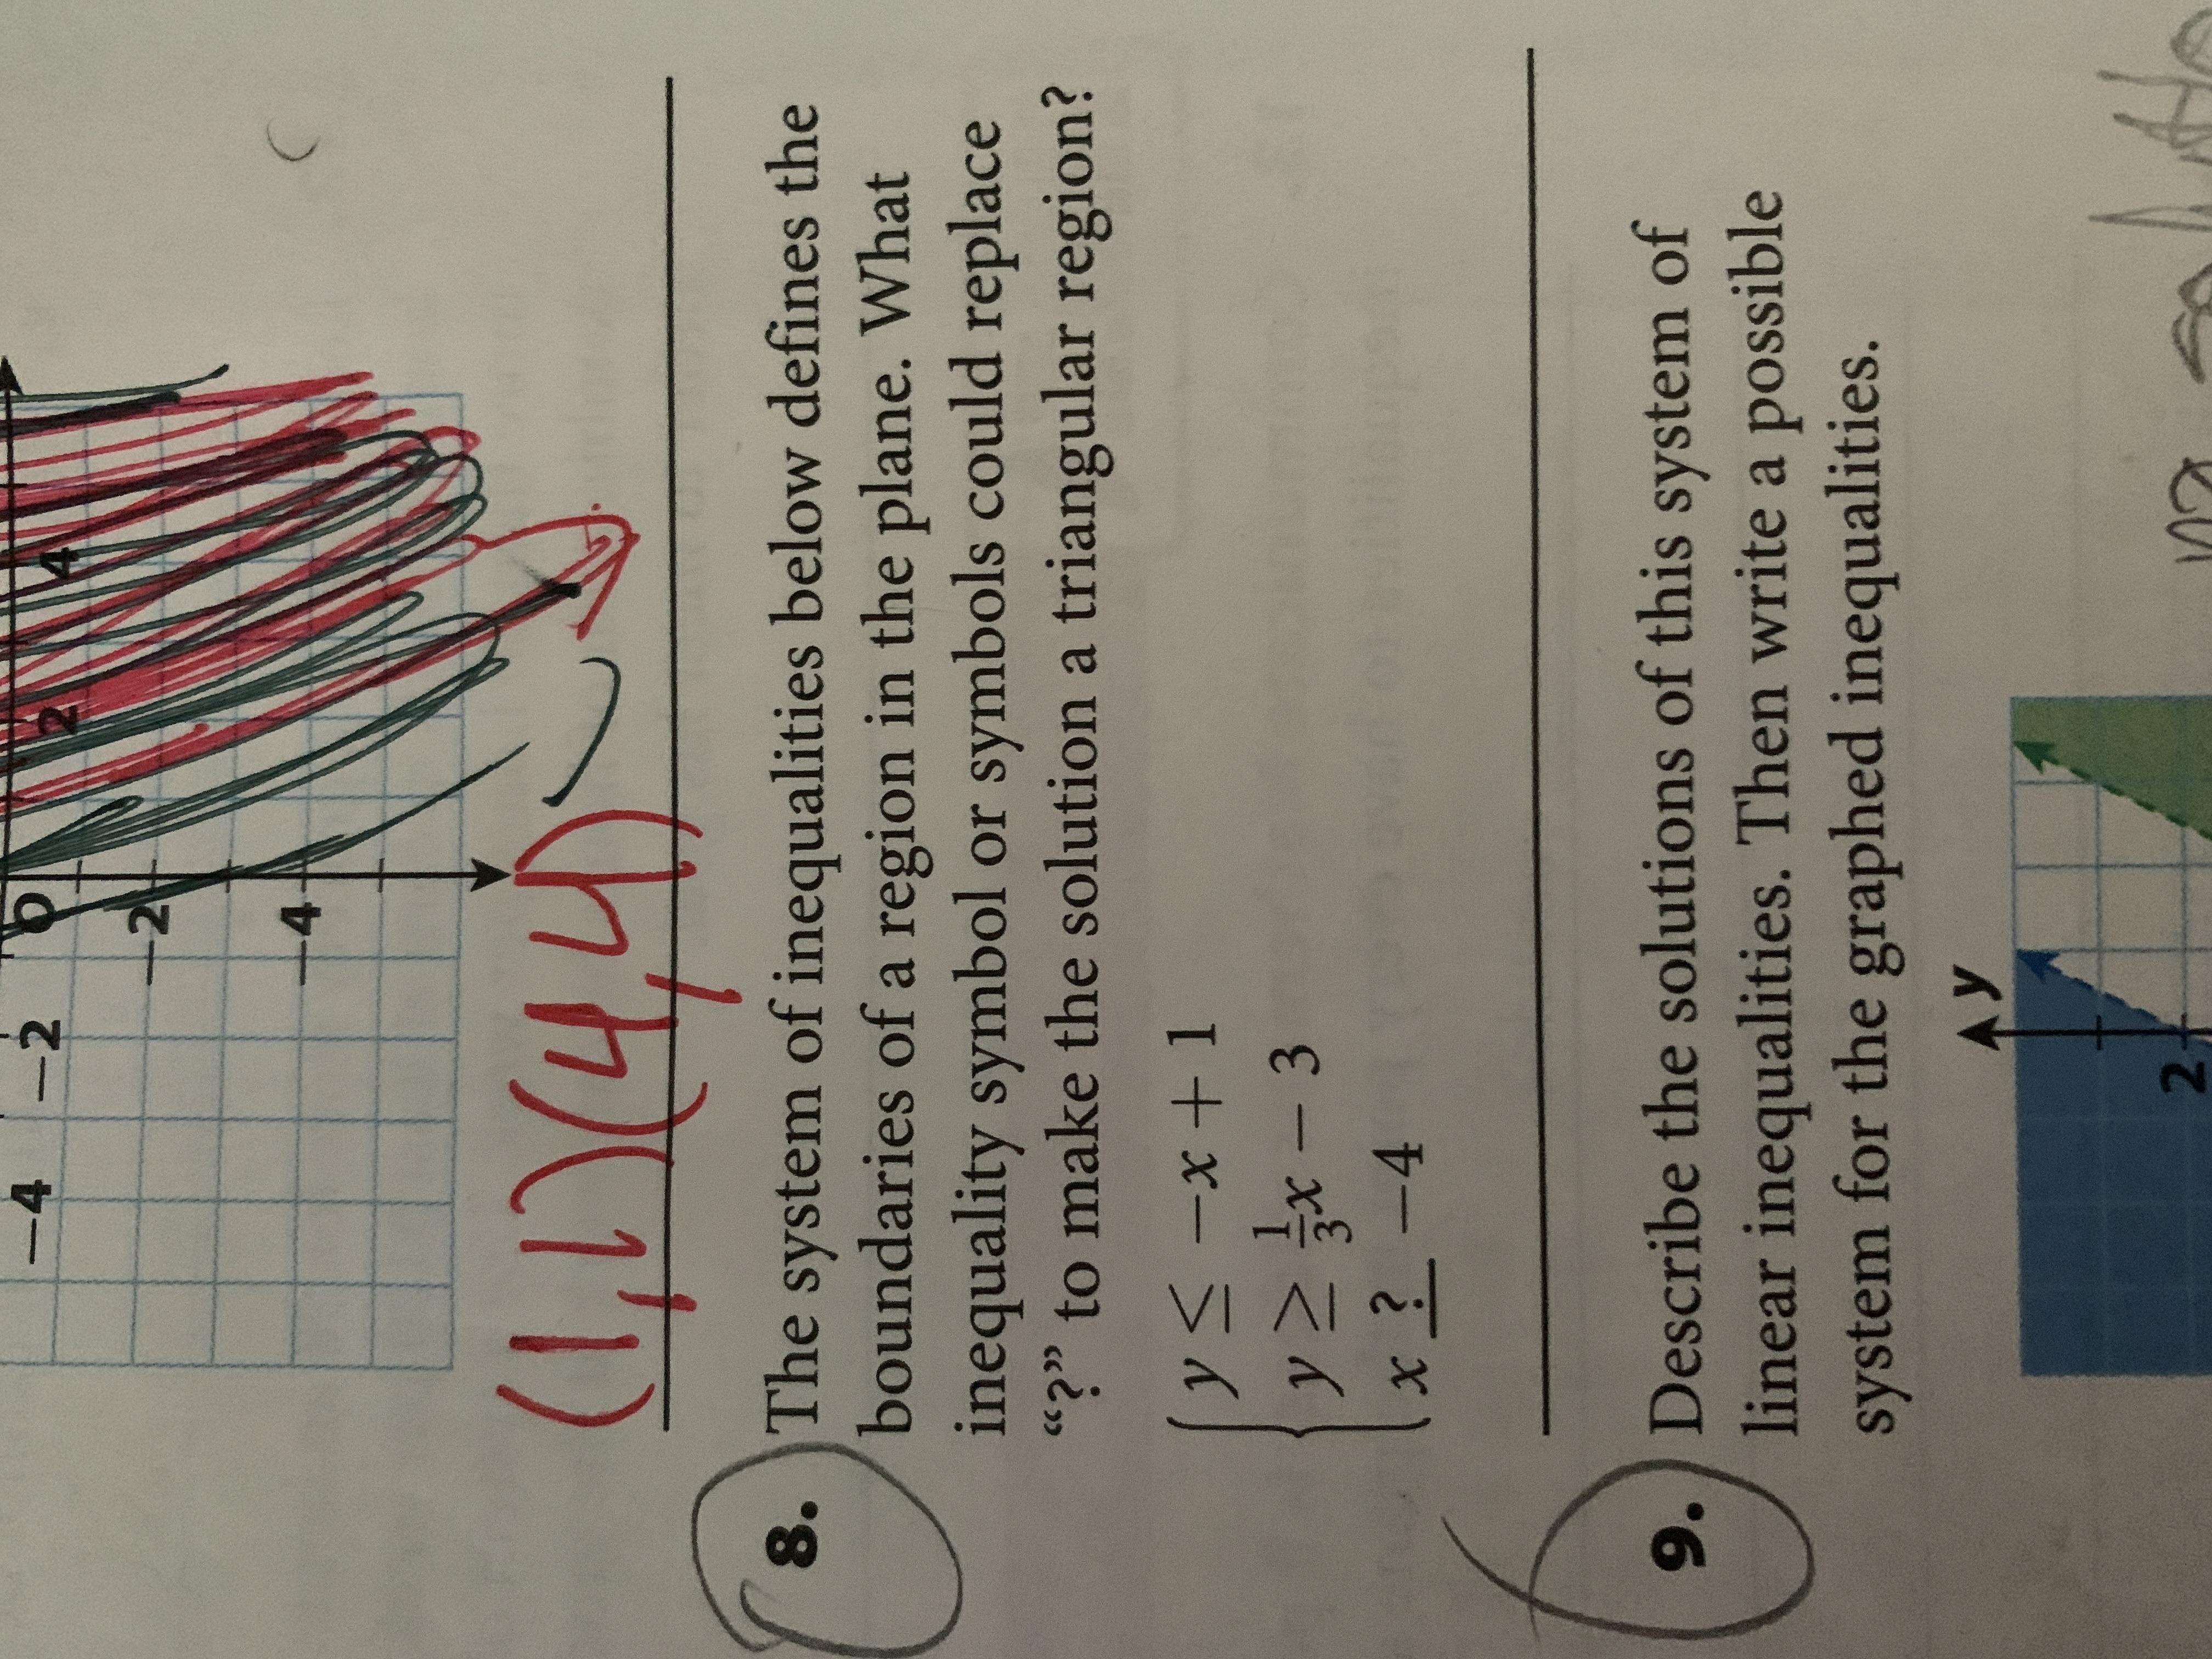 4
2
O
−2
−4
−2
−4
(1,1) (4,4)
8. The system of inequalities below defines the
boundaries of a region in the plane. What
inequality symbol or symbols could replace
“?” to make the solution a triangular region?
y ≤ −x + 1
y ≥ 1/3x − 3
x ? −4
9. Describe the solutions of this system of
linear inequalities. Then write a possible
system for the graphed inequalities.
y
2